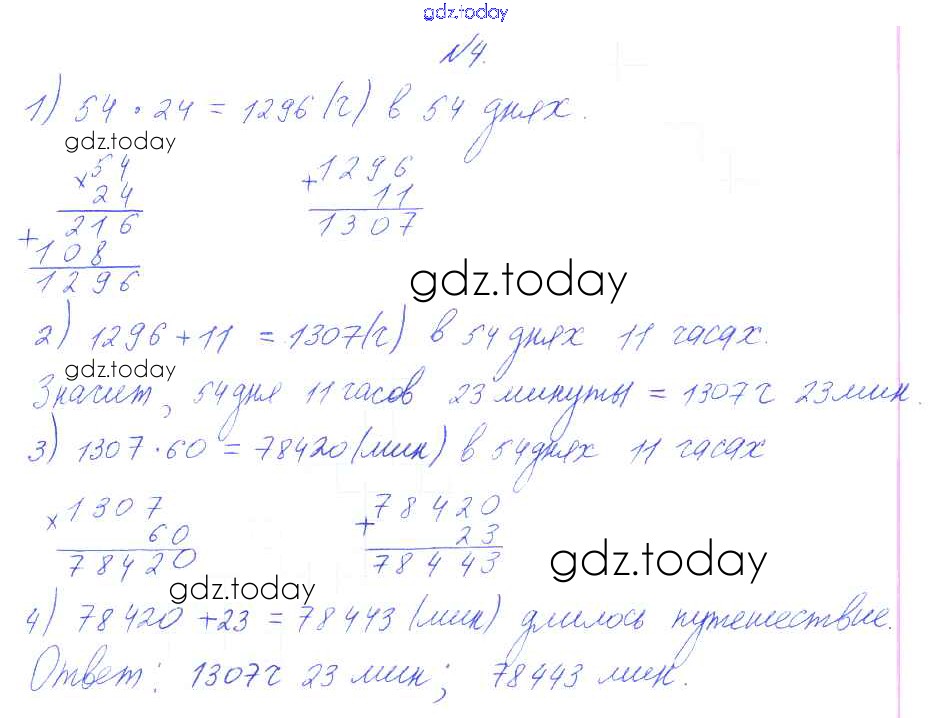 gdz.today
№4.
1) 54 · 24 = 1296 (ч) в 54 днях.
gdz.today
× 54
24
+ 216
108
1296
+ 1296
11
1307
gdz.today
2) 1296 + 11 = 1307 (ч) в 54 днях 11 часах.
gdz.today
Значит, 54 дня 11 часов 23 минуты = 1307 ч 23 мин.
3) 1307 · 60 = 78420 (мин) в 54 днях 11 часах
× 1307
60
78420
+ 78420
23
78443
gdz.today
gdz.today
4) 78420 + 23 = 78443 (мин) длилось путешествие.
Ответ: 1307 ч 23 мин; 78443 мин.